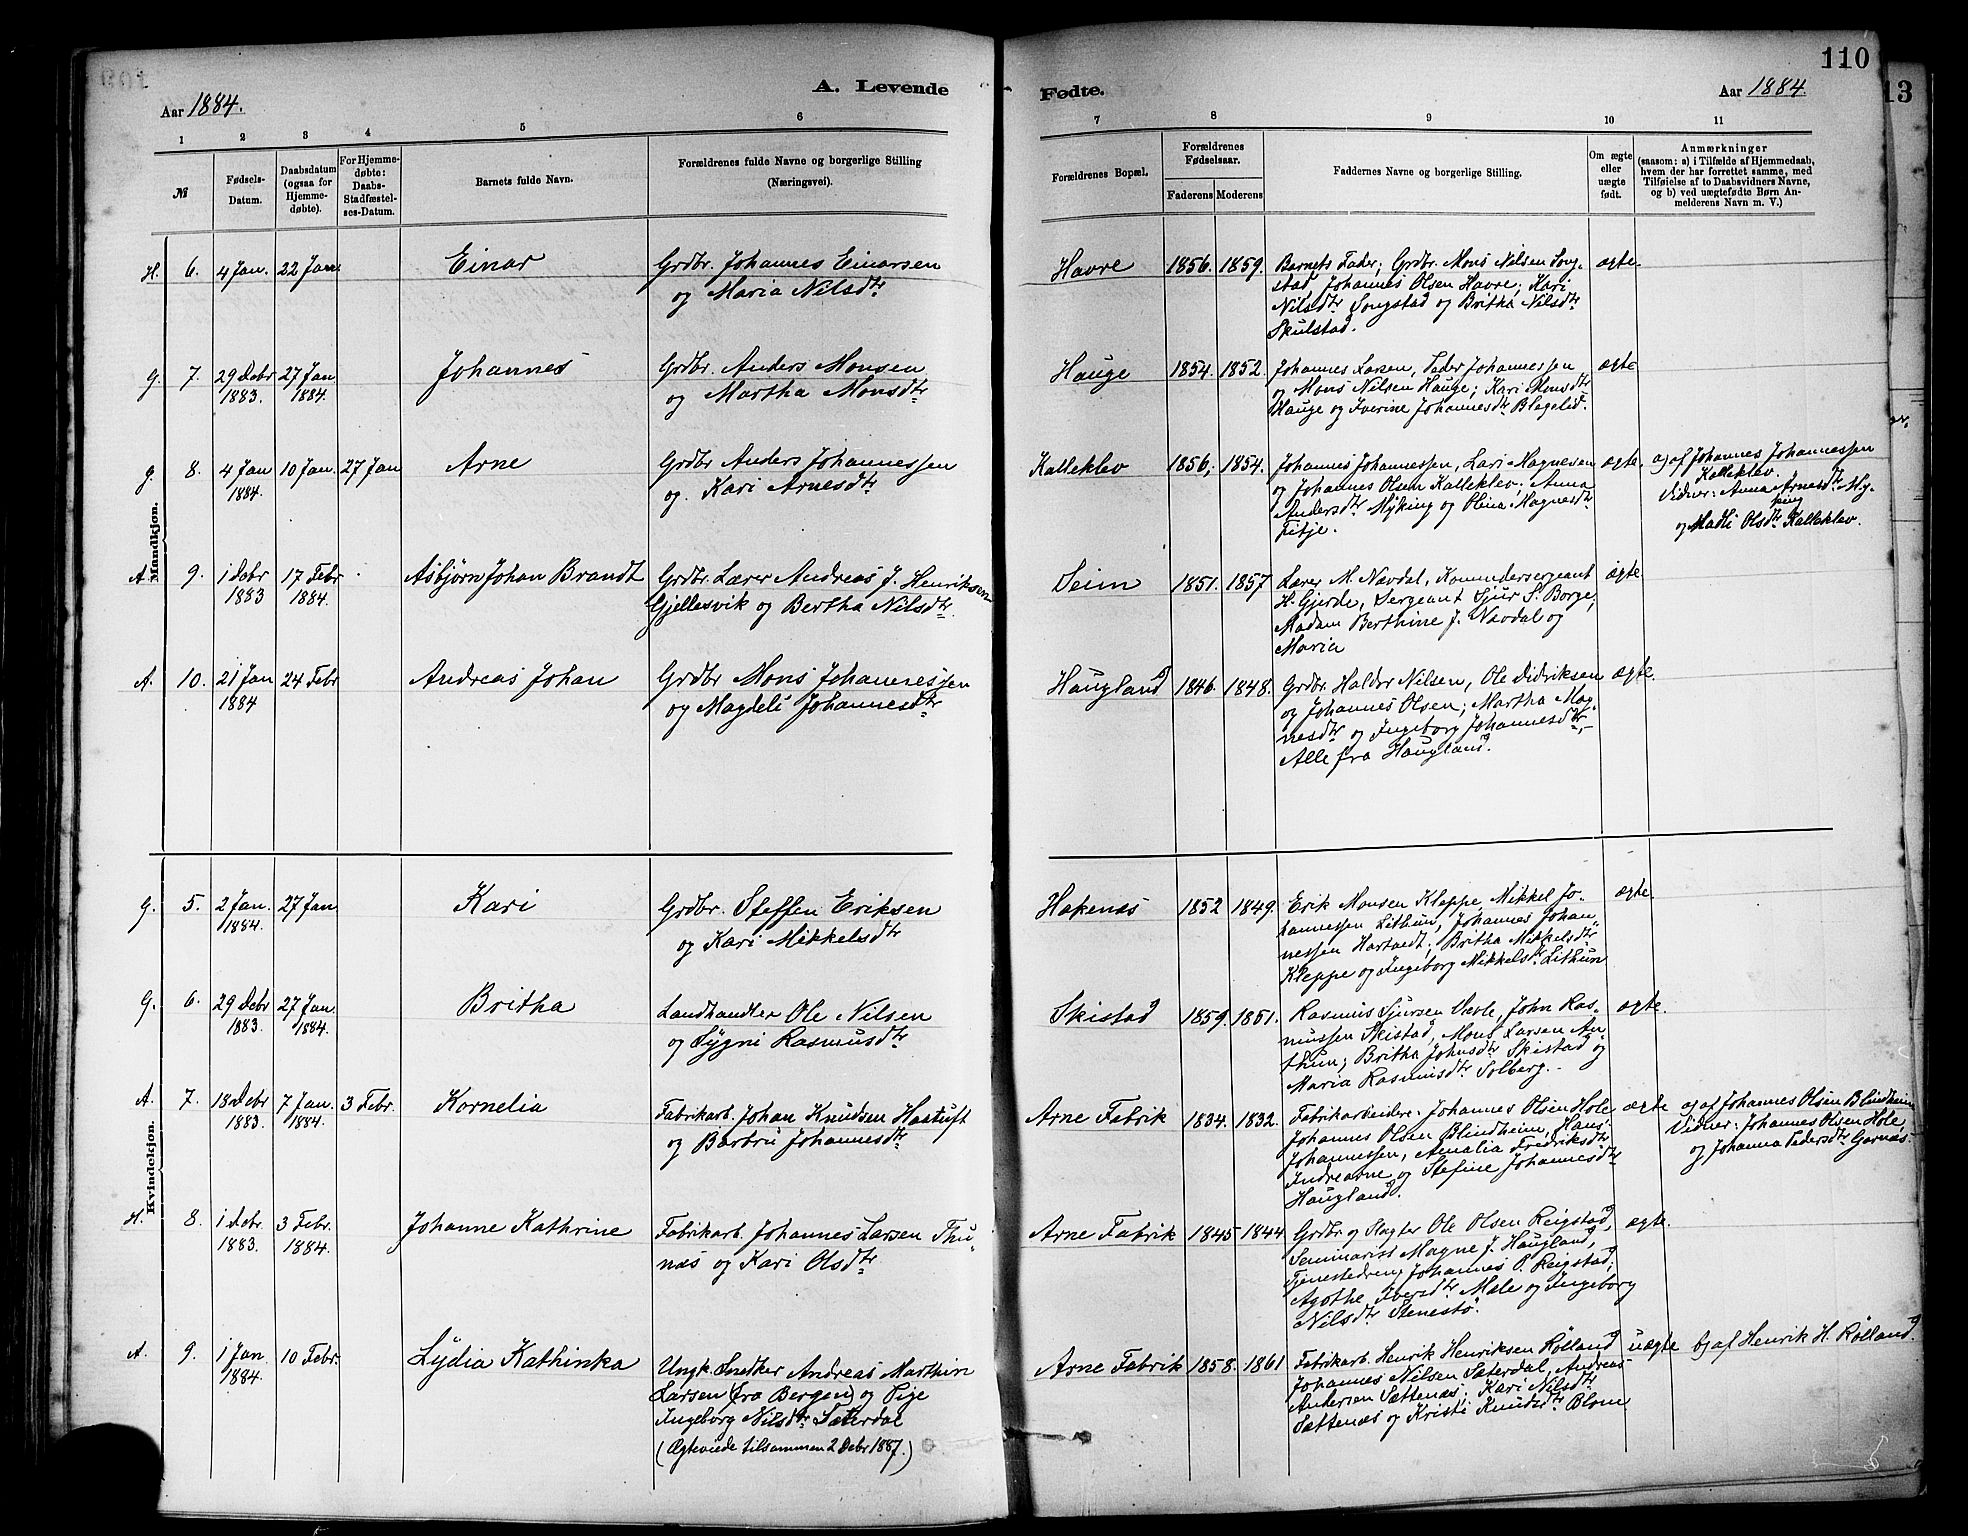 110
13
A. Levende
Fødte.
Aar 1884.
Aar 1884.
1 2 3 4 5 6
7 8 9 10 11
№
Fødsels-
Datum.
Daabsdatum
(ogsaa for
Hjemme-
døbte).
For Hjemme-
døbte:
Daabs-
Stadfæstel-
ses-Datum.
Barnets fulde Navn.
Forældrenes fulde Navne og borgerlige Stilling
(Næringsvei).
Forældrenes Bopæl.
Forældrenes
Fødselsaar.
Faderens Moderens
Faddernes Navne og borgerlige Stilling.
Om ægte
eller
uægte
født.
Anmærkninger
(saasom: a) i Tilfælde af Hjemmedaab,
hvem der har forrettet samme, med
Tilføielse af to Daabsvidners Navne,
og b) ved uægtefødte Børn An-
melderens Navn m. V.)
Mandkjøn.
H. 6. 4 Jan. 22 Jan. Einar
Grdbr. Johannes Einarsen
og Maria Nilsdtr
Havre 1856. 1859.
Barnets Fader; Grdbr. Mons Nilsen Song-
stad, Johannes Olsen Havre; Kari
Nilsdtr Songstad og Britha Nilsdtr
Skulstad.
ægte
G. 7. 29 Debr 27 Jan Johannes
1883. 1884.
Grdbr. Anders Monsen
og Martha Monsdtr
Hauge 1854. 1852.
Johannes Larsen, Peder Johannessen
og Mons Nilsen Hauge; Kari Monsdtr
Hauge og Iverine Johannesdtr Blagelid.
ægte
G. 8. 4 Jan 10 Jan. 27 Jan Arne
1884.
Grdbr Anders Johannessen
og Kari Arnesdtr
Kalleklev 1856; 1854.
Johannes Johannessen, Lars Magnesen
og Johannes Olsen Kalleklev; Anna
Andersdtr Myking og Olina Magnesdtr
Titje.
ægte.
a) af Johannes Johannessen
Kalleklev.
Vidner: Anna Arnesdtr My-
king
og Madli Olsdtr Kalleklev.
A. 9. 1 Debr 17 Febr Asbjørn Johan Brandt
1883 1884.
Grdbr. Lærer Andreas J. Henriksen
Gjellesvik og Bertha Nilsdtr
Seim 1851. 1857
Lærer M. Navdal, Kommandersergeant
H. Gjerde, Sergeant Sjur S. Borge;
Madam Berthine J. Navdal og
Maria
ægte.
A. 10. 21 Jan 24 Febr Andreas Johan
1884
Grdbr Mons Johannessen
og Magdeli Johannesdtr
Haugland 1846. 1848.
Grdbr. Haldor Nilsen, Ole Didriksen
og Johannes Olsen; Martha Mag-
nesdtr og Ingeborg Johannesdtr,
Alle fra Haugland.
ægte.
Kvindekjøn.
G. 5. 2 Jan. 27 Jan Kari
1884.
Grdbr. Steffen Eriksen
og Kari Mikkelsdtr
Hakenæs 1852 1849.
Erik Monsen Kleppe, Mikkel Jo-
hannessen Lithun, Johannes Johan-
nessen Hartvedt; Britha Mikkelsdtr
Kleppe og Ingeborg Mikkelsdtr Lithun
ægte.
G. 6. 29 Debr 27 Jan. Britha
1883. 1884.
Landhandler Ole Nilsen
og Sygni Rasmusdtr
Skistad 1859. 1861.
Rasmus Sjursen Væle, John Ras-
mussen Skistad, Mons Larsen An-
thun; Britha Johnsdtr Skistad og
Maria Rasmusdtr Solberg.
ægte.
A. 7. 18 Debr 7 Jan. 3 Febr. Kornelia
1883. 1884.
Fabrikarb. Johan Knudsen Hartuft
og Barbru Johannesdtr
Arne Fabrik 1834. 1832.
Fabrikarbeidere: Johannes Olsen Hole
Johannes Olsen Blindheim, Hans
Johannessen, Amalia Fredriksdtr
Indrearne og Stefine Johannesdtr
Haugland.
ægte
a) af Johannes Olsen Blindheim
Vidner: Johannes Olsen Hole,
og Johanna Pedersdtr Garnæs.
H. 8. 1 Debr. 3 Febr. Johanne Kathrine
1883. 1884.
Fabrikarb. Johannes Larsen Thu-
næs og Kari Olsdtr
Arne Fabrik 1845 1844
Grdbr og Slagter Ole Olsen Reigstad,
Seminarist Magne J. Haugland,
Tjenestedreng Johannes P. Reigstad;
Agothe Iversdtr Mæle og Ingeborg
Nilsdtr Stenestø.
ægte.
A. 9. 1 Jan 10 Febr. Lydia Kathinka
1884.
Ungk. Snedker Andreas Marthin
Larsen (fra Bergen) og Pige
Ingeborg Nilsdtr Sæterdal
(Ægteviede tilsammen 2 Debr 1887.)
Arne Fabrik 1858. 1861
Fabrikarb. Henrik Henriksen Rølland
Johannes Nilsen Sæterdal, Andreas
Andersen Sættenæs; Kari Nilsdtr
Sættenæs og Kristi Knudsdtr Blom
uægte
b) af Henrik H. Rølland.